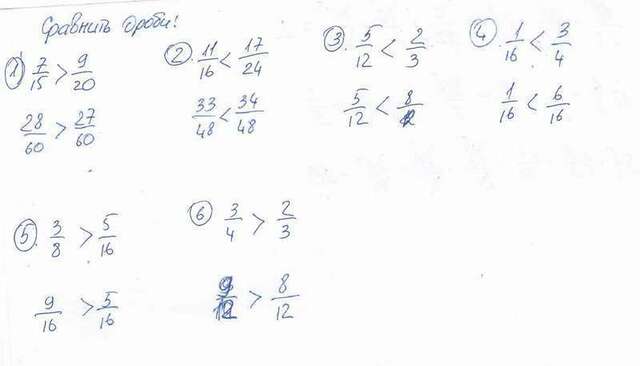 Сравнить дроби!
① 7/15 > 9/20
28/60 > 27/60
② 11/16 < 17/24
33/48 < 34/48
③ 5/12 < 2/3
5/12 < 8/12
④ 1/16 < 3/4
1/16 < 6/16
⑤ 3/8 > 5/16
9/16 > 5/16
⑥ 3/4 > 2/3
9/12 > 8/12